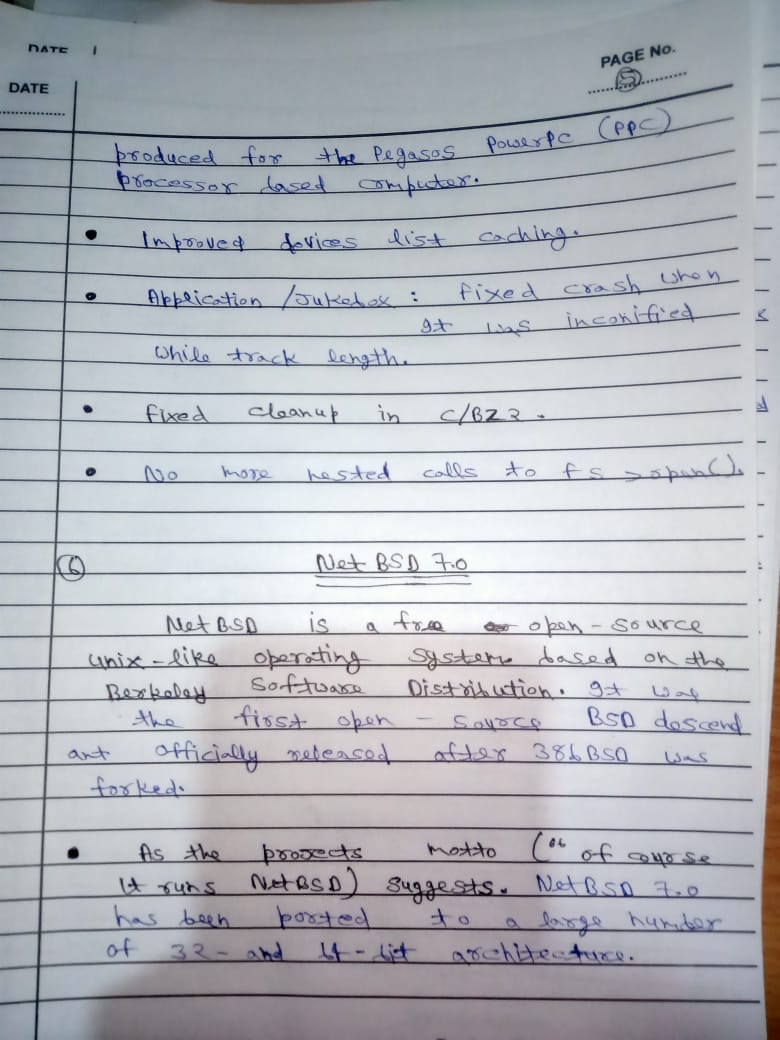 DATE
PAGE No.
DATE
5
produced for the Pegasos Powerpc (PPC)
processor based computer.
• Improved devices list caching.
• Application /Jukebox : fixed crash when
It was inconified
while track length.
• fixed cleanup in C/BZ2.
• No more nested calls to fs >open().
6 Net BSD 7.0
Net BSD is a free open-source
unix-like operating system based on the
Berkeley Software Distribution. It was
the first open-source BSD descend
ant officially released after 386BSD was
forked.
• As the projects motto (“ of course
It runs NetBSD) suggests. NetBSD 7.0
has been ported to a large number
of 32- and 64-bit architecture.